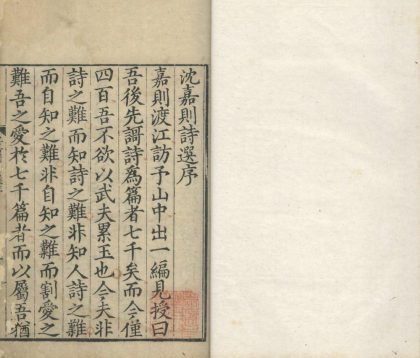 沈嘉則詩選序
嘉則渡江訪予山中出一編見授曰
吾後先謌詩為篇者七千矣而今僅
四百吾不欲以武夫累玉也今夫非
詩之難而知詩之難非知人詩之難
而自知之難非自知之難而割愛之
難吾之愛於七千篇者而以屬吾猶